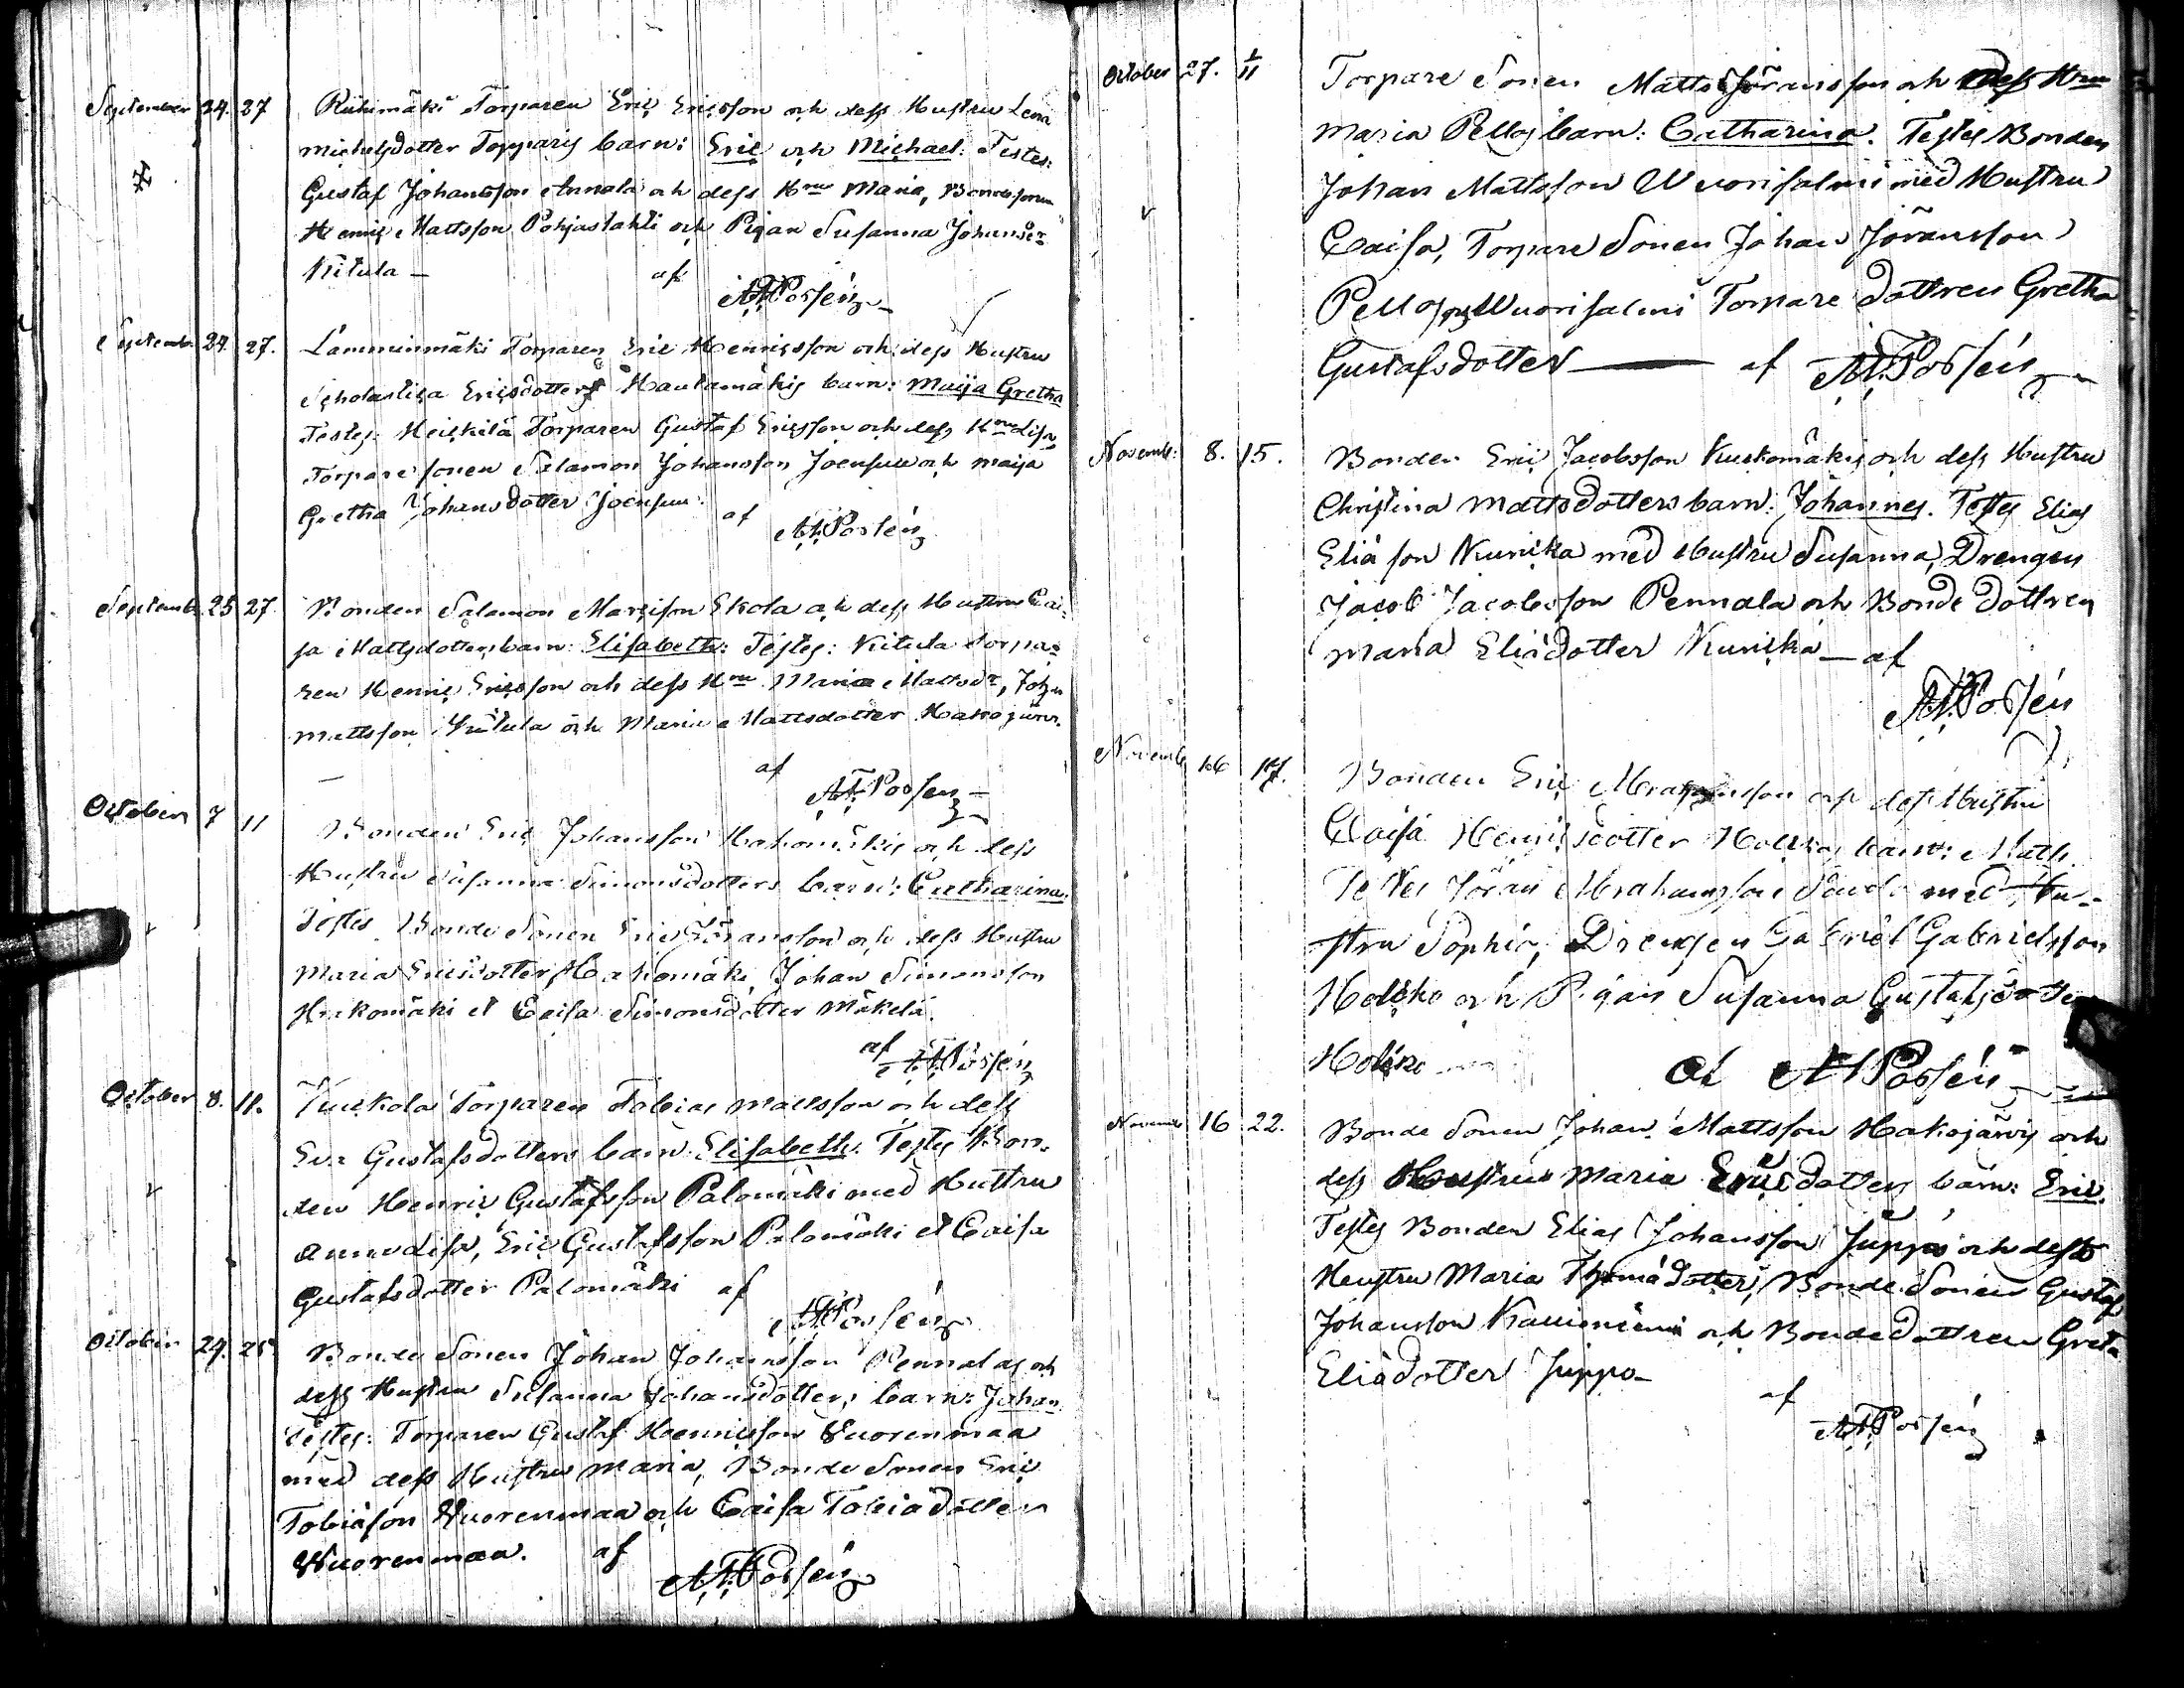 September 24. 27 Riihimäki Torparen Eric Ericsson och dess Hustru Lena
Michelsdotter Topparis barn: Eric och Michael. Testes:
Gustaf Johansson Annala och dess Hru Maria, Bondesonen
Henric Mattsson Pohjaslahti och Pigan Susanna Johansdr
Kitula — af
A.H. Possén
Septemb. 24. 27. Lamminmäki Torparen Eric Henricsson och dess Hustru
Scholastica Ericsdotters Hautamäkis barn: Maija Gretha
Testes: Heickilä Torparen Gustaf Ericsson och dess Hru Lisa,
Torpare sonen Salamon Johansson Joensuu och Maija
Gretha Johansdotter Joensuu. af
A.H. Possén
Septemb. 25 27. Bonden Salamon Marcisson Skola och dess Hustru Cai-
sa Mattsdotters barn: Elisabeth: Testes: Kitula Torpa-
ren Henric Ericsson och dess Hru Maria Mattsdr, Johan
Mattsson Kitula och Maria Mattsdotter Hakojärvi.
— af
A.H. Possén
October 7 11 Bonden Eric Johansson Hakomäkis och dess
Hustru Susanna Simonsdotters barn: Catharina.
Testes Bonde Sonen Eric Jöransson och dess Hustru
Maria Ericsdotter Hakomäki, Johan Simonsson
Hakomäki et Caisa Simonsdotter Mäkelä.
af A.H. Possén
October 8. 11. Kuckola Torparen Tobias Mattsson och dess
Eva Gustafsdotters barn Elisabeth. Testes Bon-
den Henric Gustafsson Palomäki med Hustru
Anna Lisa, Eric Gustafsson Palomäki et Caisa
Gustafsdotter Palomäki af
A.H. Possén
October 24. 25 Bonde Sonen Johan Johansson Pennalas och
dess Hustru Susanna Johansdotters barn: Johan
Testes: Torparen Gustaf Henricsson Wuorenmaa
med dess Hustru Maria, Bonde Sonen Eric
Tobiäson Wuorenmaa och Caisa Tobiädotter
Wuorenmaa. af
A.H. Possén
October 27. 1/11 Torpare Sonen Matts Jöransson och dess Hru
Maria Pellos barn: Catharina. Testes Bonden
Johan Mattsson Wuorisalmi med Hustru
Caisa, Torpare Sonen Johan Jöransson
Pello och Wuorisalmi Torpare dottren Gretha
Gustafsdotter — af A.H. Possén
Novemb: 8. 15. Bonden Eric Jacobsson Kuckomäkis och dess Hustru
Christina Mattsdotters barn: Johannes. Testes Elias
Eliäson Kunicka med Hustru Susanna, Drengen
Jacob Jacobsson Pennala och Bonde dottren
Maria Eliädotter Kunicka — af
A.H. Possén
Novemb. 16 17. Bonden Eric Abrahamsson och dess Hustru
Caisa Henricsdotter Holckos barn: Matts.
Testes Jöran Abrahamsson med Hu-
stru Sophia, Drengen Gabriel Gabrielsson
Holcko och Pigan Susanna Gustafsdotter
Holcko af A.H. Possén
Novemb 16 22. Bonde Sonen Johan Mattsson Hakojärvis och
dess Hustrus Maria Ericsdotters barn: Eric.
Testes Bonden Elias Johansson Juppo och dess
Hustru Maria Thomädotter, Bonde Sonen Gustaf
Johansson och Bondedottren Greta
Eliädotter Juppo— af
A.H. Possén